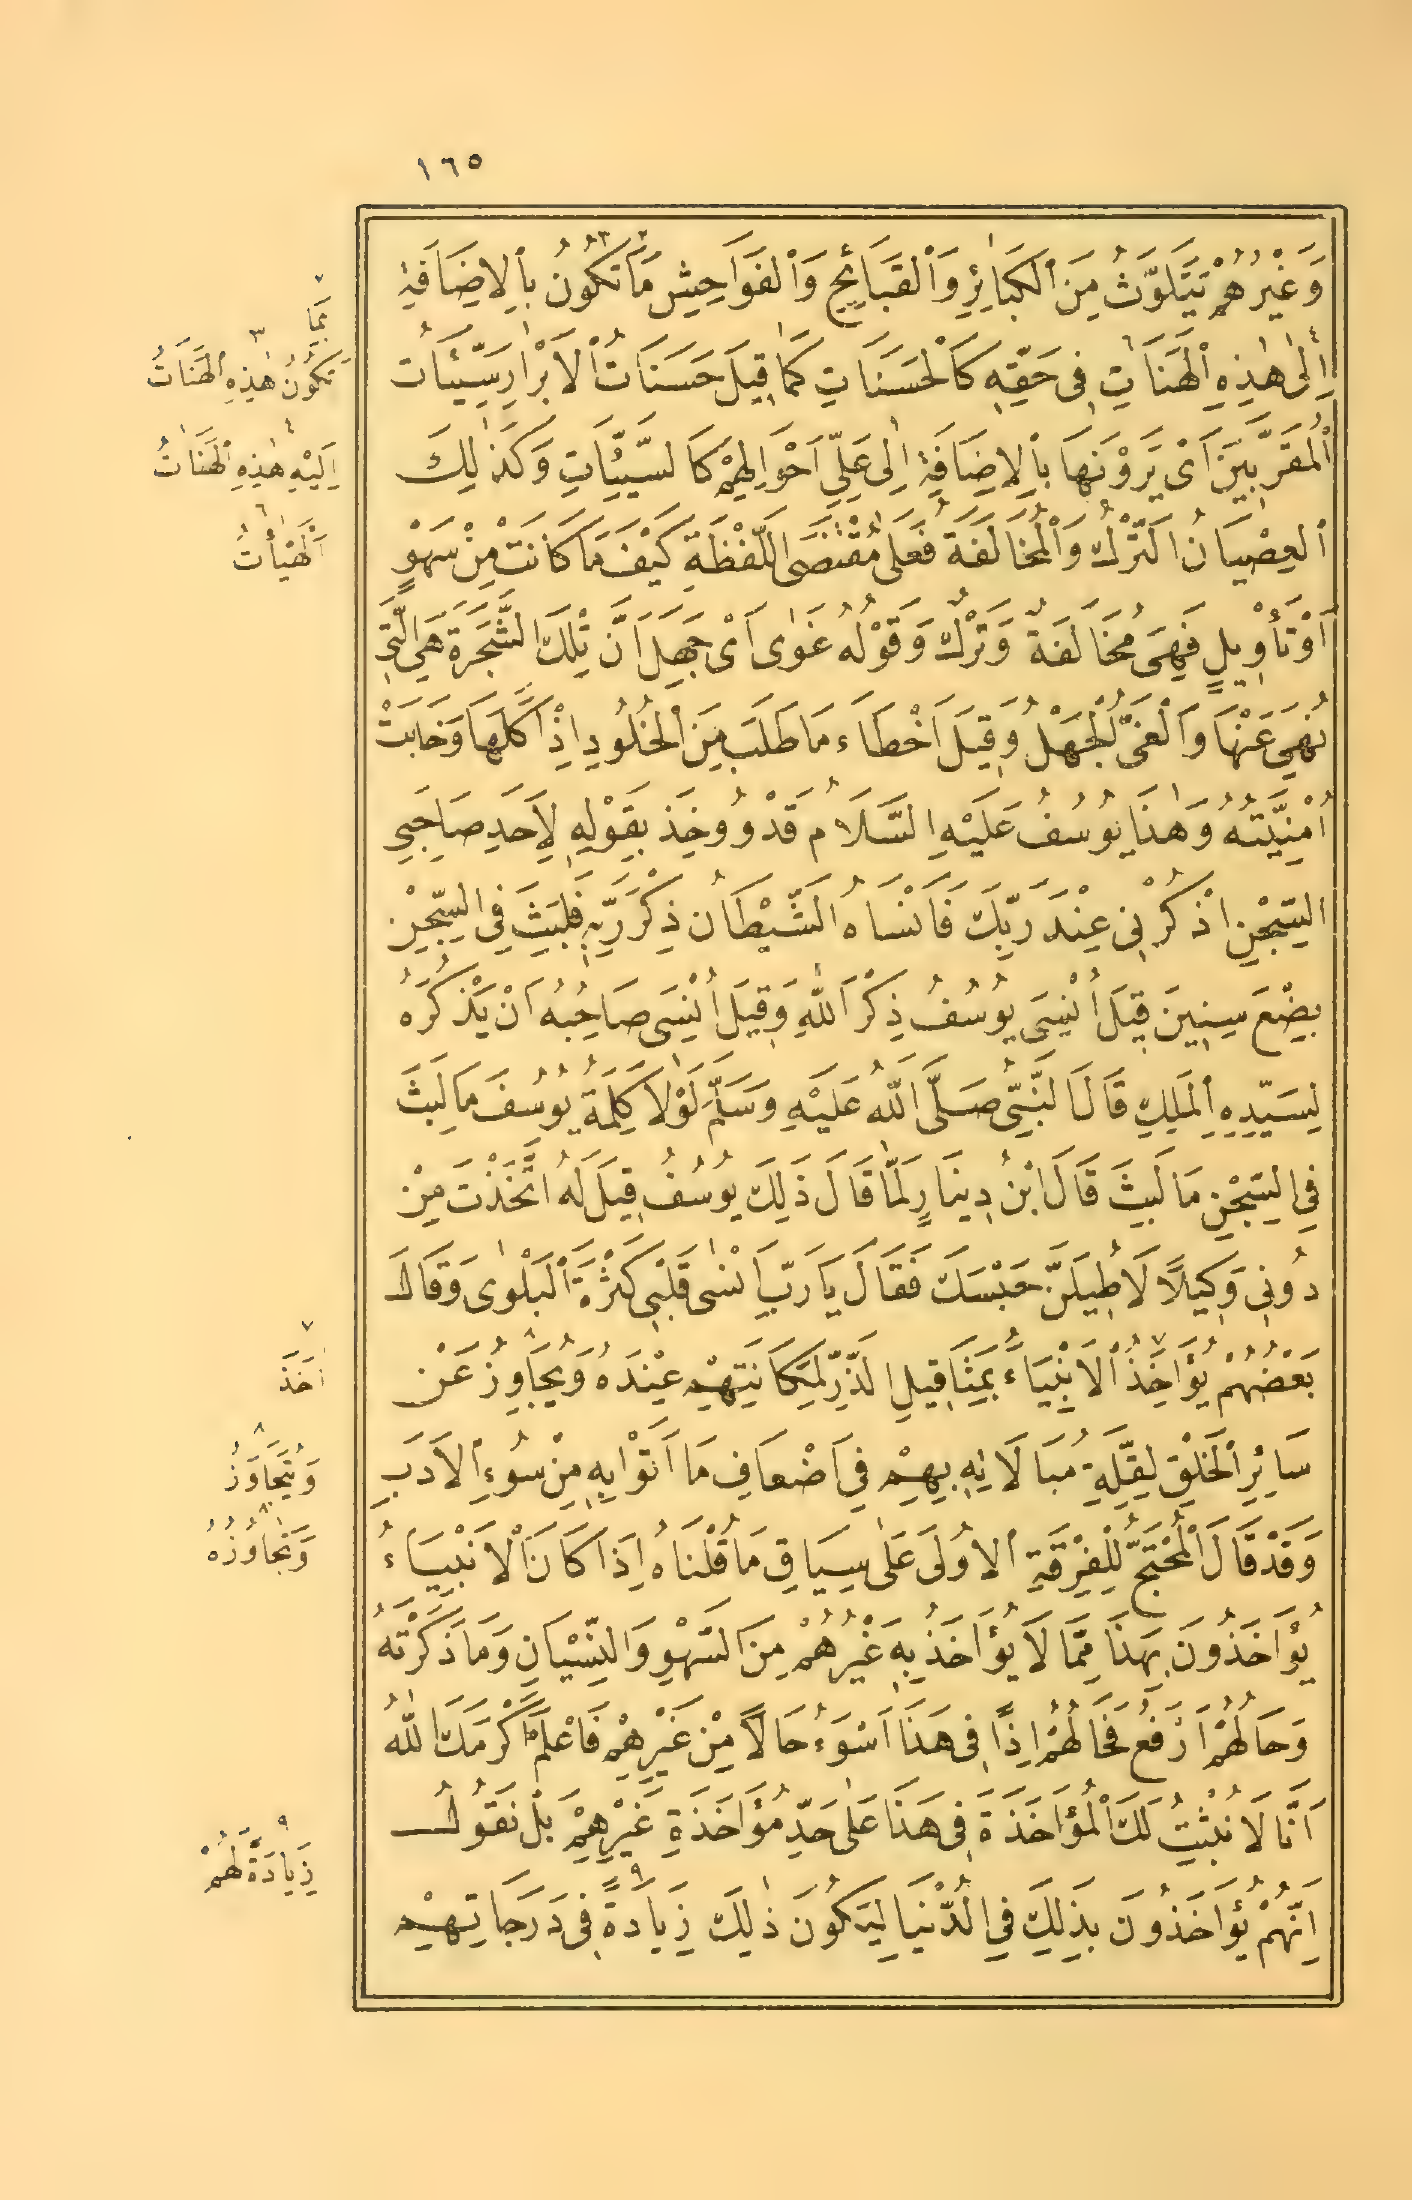 ١٦٥
وَغَيْرُهُمْ يَتَلَوَّثُ مِنَ الْكَبَائِرِ وَالْقَبَائِحِ وَالْفَوَاحِشِ مَا تَكُونُ بِالْإِضَافَةِ
إِلَى هٰذِهِ الْهَنَاتِ فِي حَقِّهِ كَالْحَسَنَاتِ كَمَا قِيلَ حَسَنَاتُ الْأَبْرَارِ سَيِّئَاتُ
الْمُقَرَّبِينَ أَيْ يَرَوْنَهَا بِالْإِضَافَةِ إِلَى عَلِيِّ أَحْوَالِهِمْ كَالسَّيِّئَاتِ وَكَذٰلِكَ
الْعِصْيَانُ التَّرْكُ وَالْمُخَالَفَةُ فَعَلَى مُقْتَضَى اللَّفْظَةِ كَيْفَ مَا كَانَتْ مِنْ سَهْوٍ
أَوْ تَأْوِيلٍ فَهِيَ مُخَالَفَةٌ وَتَرْكٌ وَقَوْلُهُ غَوَى أَيْ جَهِلَ أَنَّ تِلْكَ الشَّجَرَةَ هِيَ الَّتِي
نُهِيَ عَنْهَا وَالْغَيُّ الْجَهْلُ وَقِيلَ أَخْطَاءَ مَا طَلَبَ مِنَ الْخُلُودِ إِذْ أَكَلَهَا وَخَابَتْ
أُمْنِيَّتُهُ وَهٰذَا يُوسُفُ عَلَيْهِ السَّلَامُ قَدْ وُوخِذَ بِقَوْلِهِ لِأَحَدِ صَاحِبَيِ
السِّجْنِ اذْكُرْنِي عِنْدَ رَبِّكَ فَأَنْسَاهُ الشَّيْطَانُ ذِكْرَ رَبِّهِ فَلَبِثَ فِي السِّجْنِ
بِضْعَ سِنِينَ قِيلَ أُنْسِيَ يُوسُفُ ذِكْرَ اللهِ وَقِيلَ أُنْسِيَ صَاحِبُهُ أَنْ يَذْكُرَهُ
لِسَيِّدِهِ الْمَلِكِ قَالَ النَّبِيُّ صَلَّى اللهُ عَلَيْهِ وَسَلَّمَ لَوْلَا كَلِمَةُ يُوسُفَ مَا لَبِثَ
فِي السِّجْنِ مَا لَبِثَ قَالَ ابْنُ دِينَارٍ لَمَّا قَالَ ذَلِكَ يُوسُفُ قِيلَ لَهُ اتَّخَذْتَ مِنْ
دُونِي وَكِيلًا لَأُطِيلَنَّ حَبْسَكَ فَقَالَ يَا رَبِّ أَنْسَى قَلْبِي كَثْرَةُ الْبَلْوَى وَقَالَ
بَعْضُهُمْ يُؤَاخَذُ الْأَنْبِيَاءُ بِمَثَاقِيلِ الذَّرِّ لِمَكَانَتِهِمْ عِنْدَهُ وَيُجَاوِزُ عَنْ
سَائِرِ الْخَلْقِ لِقِلَّةِ مُبَالَاتِهِ بِهِمْ فِي أَضْعَافِ مَا أَتَوْا بِهِ مِنْ سُوءِ الْأَدَبِ
وَقَدْ قَالَ الْمُحْتَجُّ لِلْفِرْقَةِ الْأُولَى عَلَى سِيَاقِ مَا قُلْنَاهُ إِذَا كَانَ الْأَنْبِيَاءُ
يُؤَاخَذُونَ بِهَذَا مِمَّا لَا يُؤَاخَذُ بِهِ غَيْرُهُمْ مِنَ السَّهْوِ وَالنِّسْيَانِ وَمَا ذَكَرْتَهُ
وَحَالُهُمْ أَرْفَعُ فَحَالُهُمْ إِذًا فِي هَذَا أَسْوَءُ حَالًا مِنْ غَيْرِهِمْ فَاعْلَمْ أَكْرَمَكَ اللهُ
أَنَّا لَا نُثْبِتُ لَكَ الْمُؤَاخَذَةَ فِي هَذَا عَلَى حَدِّ مُؤَاخَذَةِ غَيْرِهِمْ بَلْ نَقُولُ
إِنَّهُمْ يُؤَاخَذُونَ بِذَلِكَ فِي الدُّنْيَا لِيَكُونَ ذٰلِكَ زِيَادَةً فِي دَرَجَاتِهِمْ
بِمَا
تَكُونُ هٰذِهِ الْهَنَاتُ
إِلَيْهِ هٰذِهِ الْهَنَاتُ
الْهَيْأَتُ
٧
أَخَذَ
٨
وَيُتَجَاوَزُ
٨
وَتَجَاوُزُهُ
٩
زِيَادَةً لَهُمْ